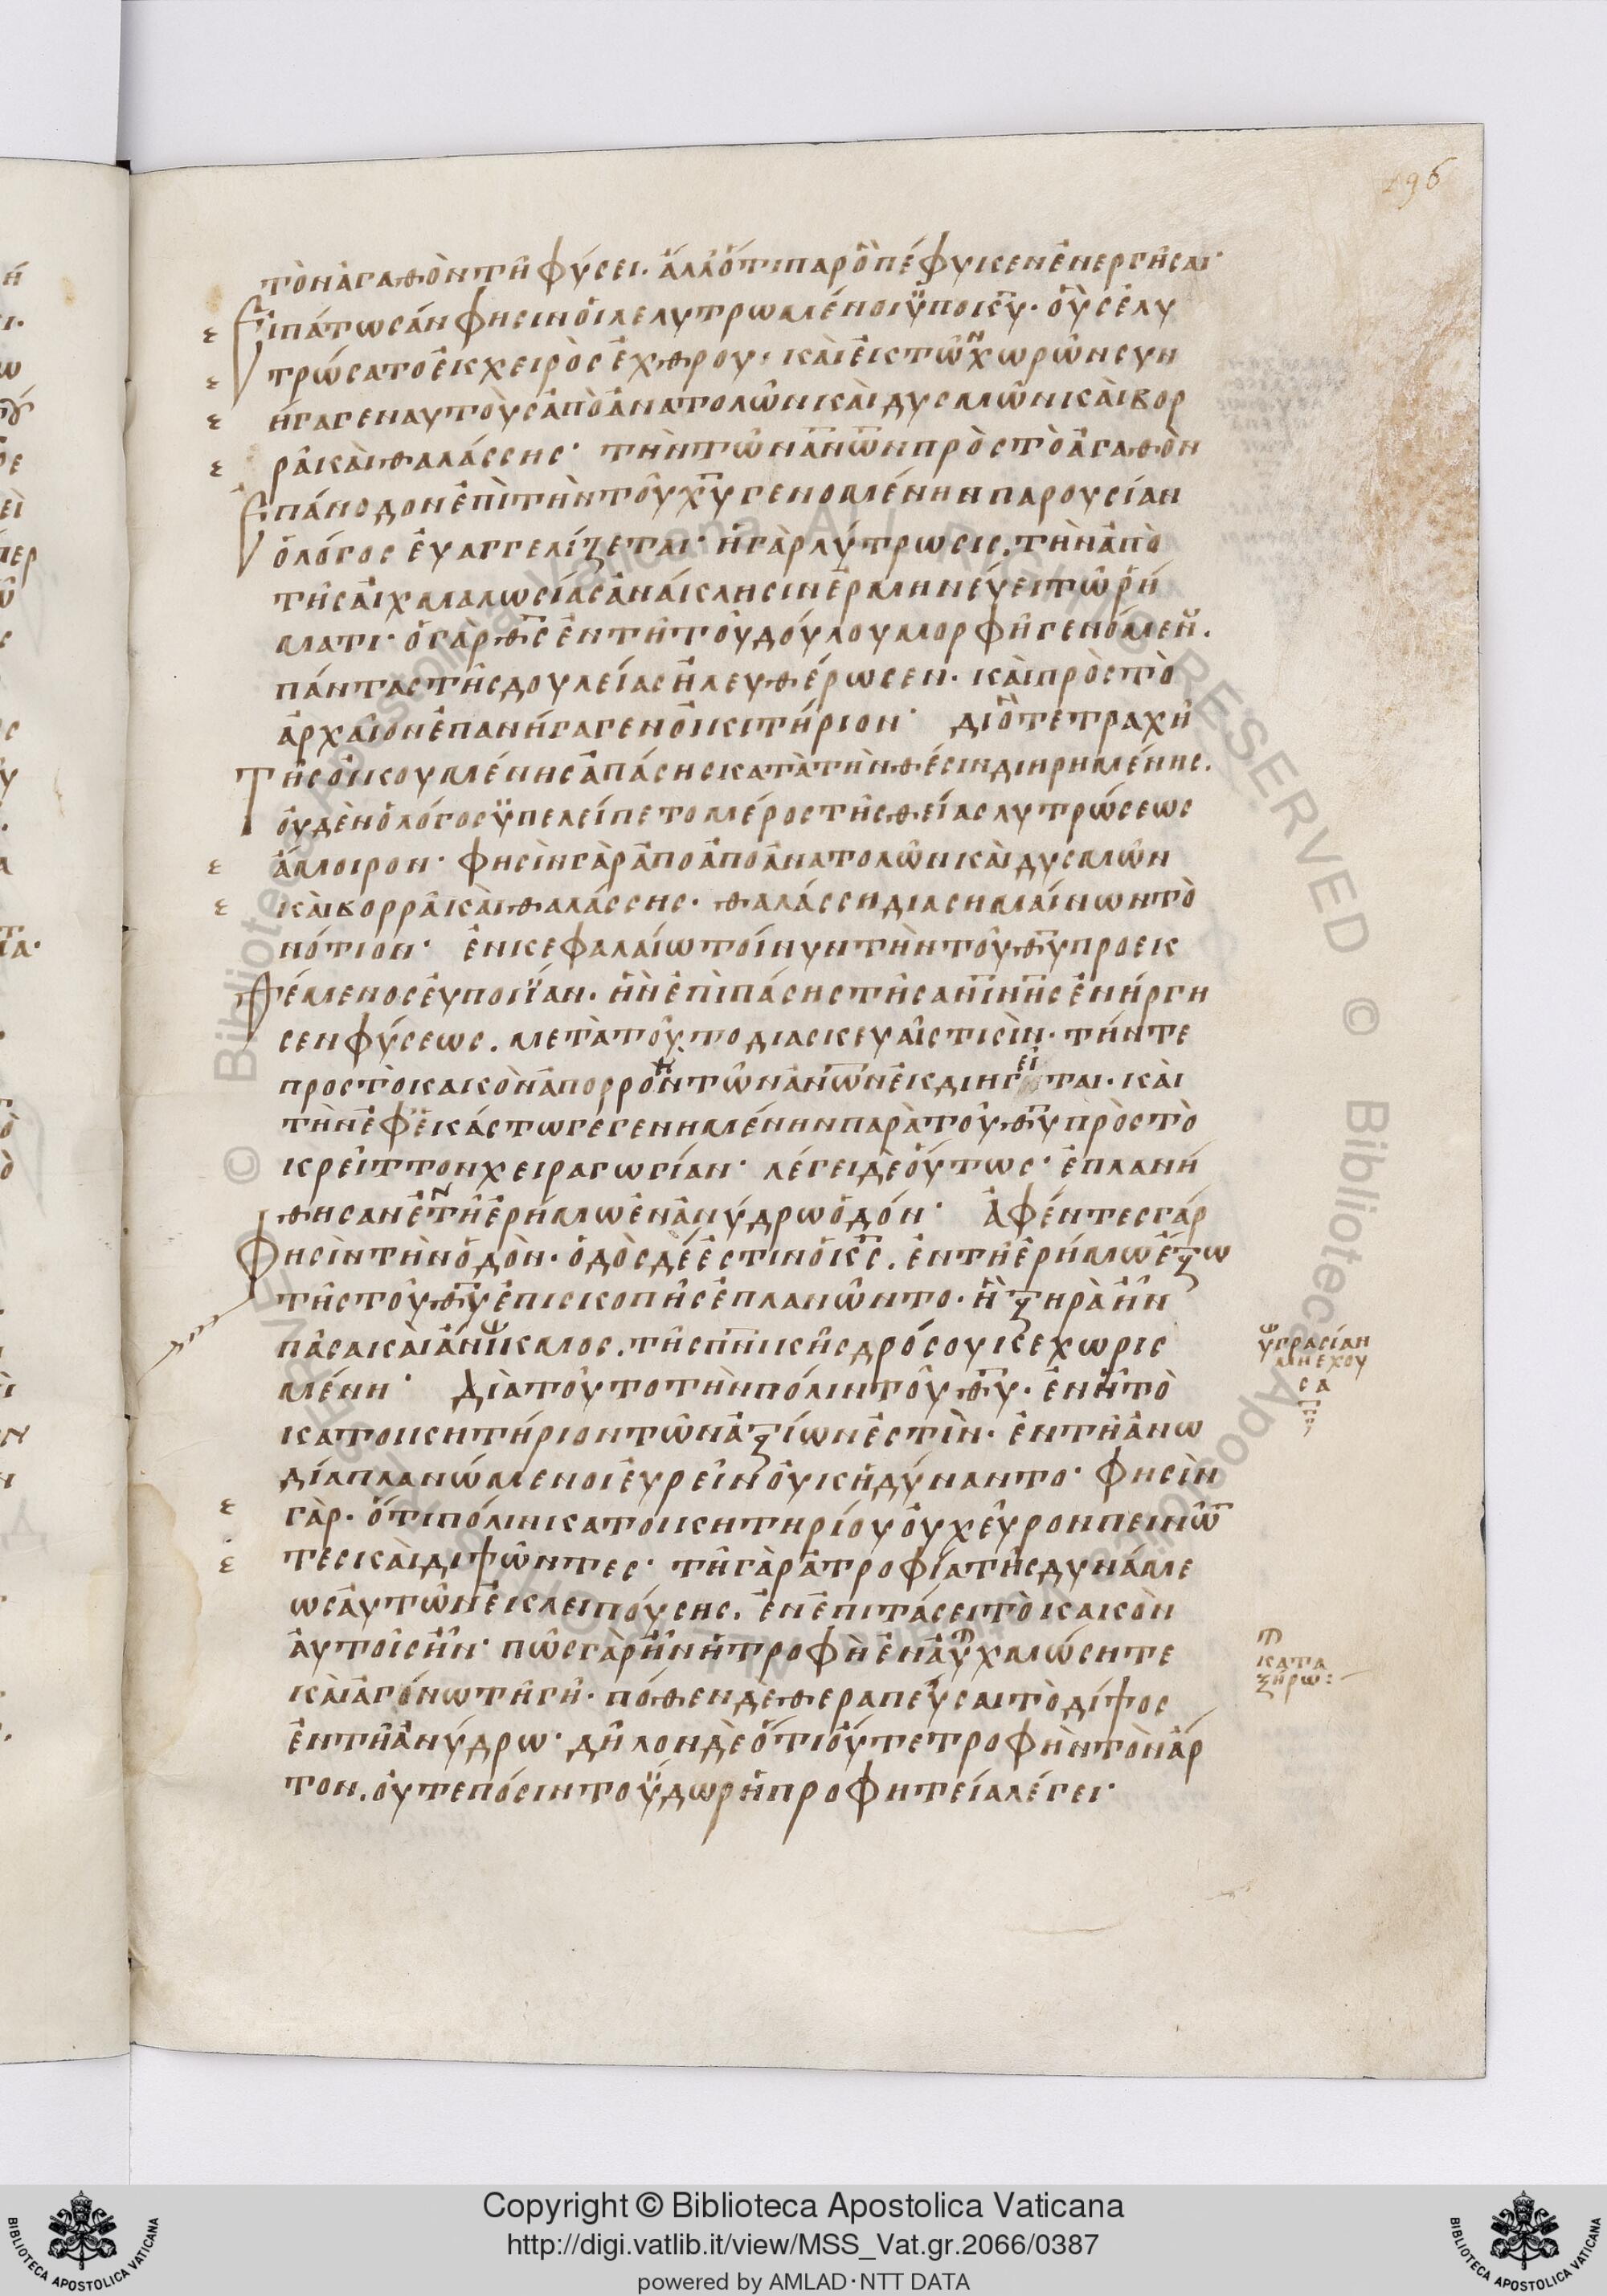 196
τὸν ἀγαθὸν τῆ φύσει. ἀλλ' ὅτιπερ ὃ πέφυκεν ἐνεργῆσαι·
Εἰπάτωσαν φησιν οἱ λελυτρωμένοι ὑπο κ̅υ̅· οὓς ἐλυ
τρώσατο ἐκ χειρὸς ἐχθρου· καὶ ἐκ τῶν χωρῶν συν
ήγαγεν αυτοὺς ἀπὸ ἀνατολῶν καὶ δυσμῶν καὶ βορ
ρᾶ καὶ θαλάσσης· τὴν τῶν α̅ν̅ω̅ν πρὸς τὸ ἀγαθὸν
Ἐπάνοδον ἐπὶ τὴν τοῦ χ̅υ̅ γενομένην παρουσίαν
ὁ λόγος ἐυαγγελίζεται· ἡ γὰρ λύτρωσις. τὴν ἀπὸ
τῆς αἰχμαλωσίας ἀνάκλησιν ἑρμηνέυει τῶ ῥή
ματι· ὁ γὰρ θ̅ς̅ ἐν τῆ τοῦ δούλου μορφῆ γενόμενος.
πάντας τῆς δουλείας ἠλευθέρωσεν· καὶ πρὸς τὸ
ἀρχαῖον ἐπανήγαγεν ὀικιτήριον· διὸ τετραχῆ
Τῆς ὀικουμένης ἁπάσης κατὰ τὴν θέσιν διηρημένης.
ὀυδὲν ὁ λόγος ὑπελείπετο μέρος τῆς θείας λυτρώσεως
ἄμοιρον· φησὶν γὰρ ἀπο ἀπο ἀνατολῶν καὶ δυσμῶν
καὶ βορρᾶ καὶ θαλάσσης· θαλάσση διασημαίνων τὸ
νότιον· ἐν κεφαλαίω τοίνυν τὴν τοῦ θ̅υ̅ προεκ
Θέμενος ἐυποιΐαν· ἣν ἐπὶ πάσης τῆς α̅ν̅ί̅ν̅η̅ς ἐνήργη
σεν φύσεως. μετὰ τοῦτο διασκευαῖς τισὶν· τήν τε
προς τὸ κακὸν ἀπορροὴν τῶν α̅ν̅ω̅ν ἐκδιηγεῖται· καὶ
τὴν ἐφ' ἑκάστω γεγενημένην παρὰ τοῦ θ̅υ̅ πρὸς τὸ
κρεῖττον χειραγωγίαν· λέγει δὲ ὅυτως· ἐπλανή
θησαν ἐν τῆ ἐρήμω ἐν ἀνύδρω ὁδόν· ἀφέντες γάρ
Φησὶν τὴν ὁδὸν· ὁδὸς δέ ἐστιν ὁ κ̅ς̅. ἐν τῆ ἐρήμω ἔξω
τῆς τοῦ θ̅υ̅ ἐπισκοπῆς ἐπλανῶντο· ἣ ξηρὰ ἦν
πᾶσα καὶ ἄνικμος. τῆς π̅ν̅ικῆς δρόσου κεχωρισ
μένη· διὰ τοῦτο τὴν πόλιν τοῦ θ̅υ̅· ἐν ἧ τὸ
κατοικητήριον τῶν ἀξίων ἐστὶν· ἐν τῆ ἄνω
δία πλανώμενοι ἑυρεῖν ὀυκ ἠδύναντο· φησὶν
γὰρ· ὅτι πόλιν κατοικητηρίου ὀυχ ἕυρον πεινῶν
τες καὶ διψῶντες· τῆ γὰρ ἀτροφία τῆς δυνάμε
ως ἀυτῶν ἐκλειπούσης. ἐν ἐπιτάσει τὸ κακὸν
ἀυτοῖς ἦν· πῶς γὰρ ἦν ἡ τροφὴ ἐν ἀυχμώση τε
καὶ ἀγόνω τῆ γῆ· πόθεν δὲ θεραπεῦσαι τὸ δίψος
ἐν τῆ ἀνύδρω· δῆλον δὲ ὅτι ὄυτε τροφὴν τὸν ἄρ
τον. ὄυτε πόσιν το ὕδωρ ἡ προφητεία λέγει·
ὑγρασίαν
μη εχου
σα
κατα
ξήρω:
Copyright © Biblioteca Apostolica Vaticana
http://digi.vatlib.it/view/MSS_Vat.gr.2066/0387
powered by AMLAD·NTT DATA